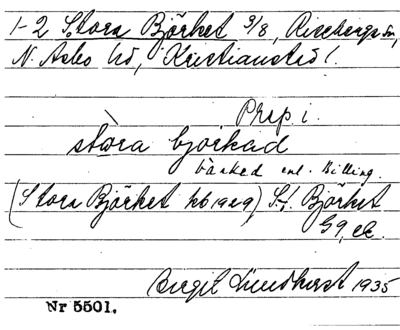 1-2 Stora Björket 3/8, Riseberga sn,
N. Åsbo hd, Kristianstad l.
Prep i.
stòra bjorkad
enl. Billing.
(Stora Björket hb 1929) St. Björket
G9, ek.
Birgit Lundkvist 1935
Nr 5501.